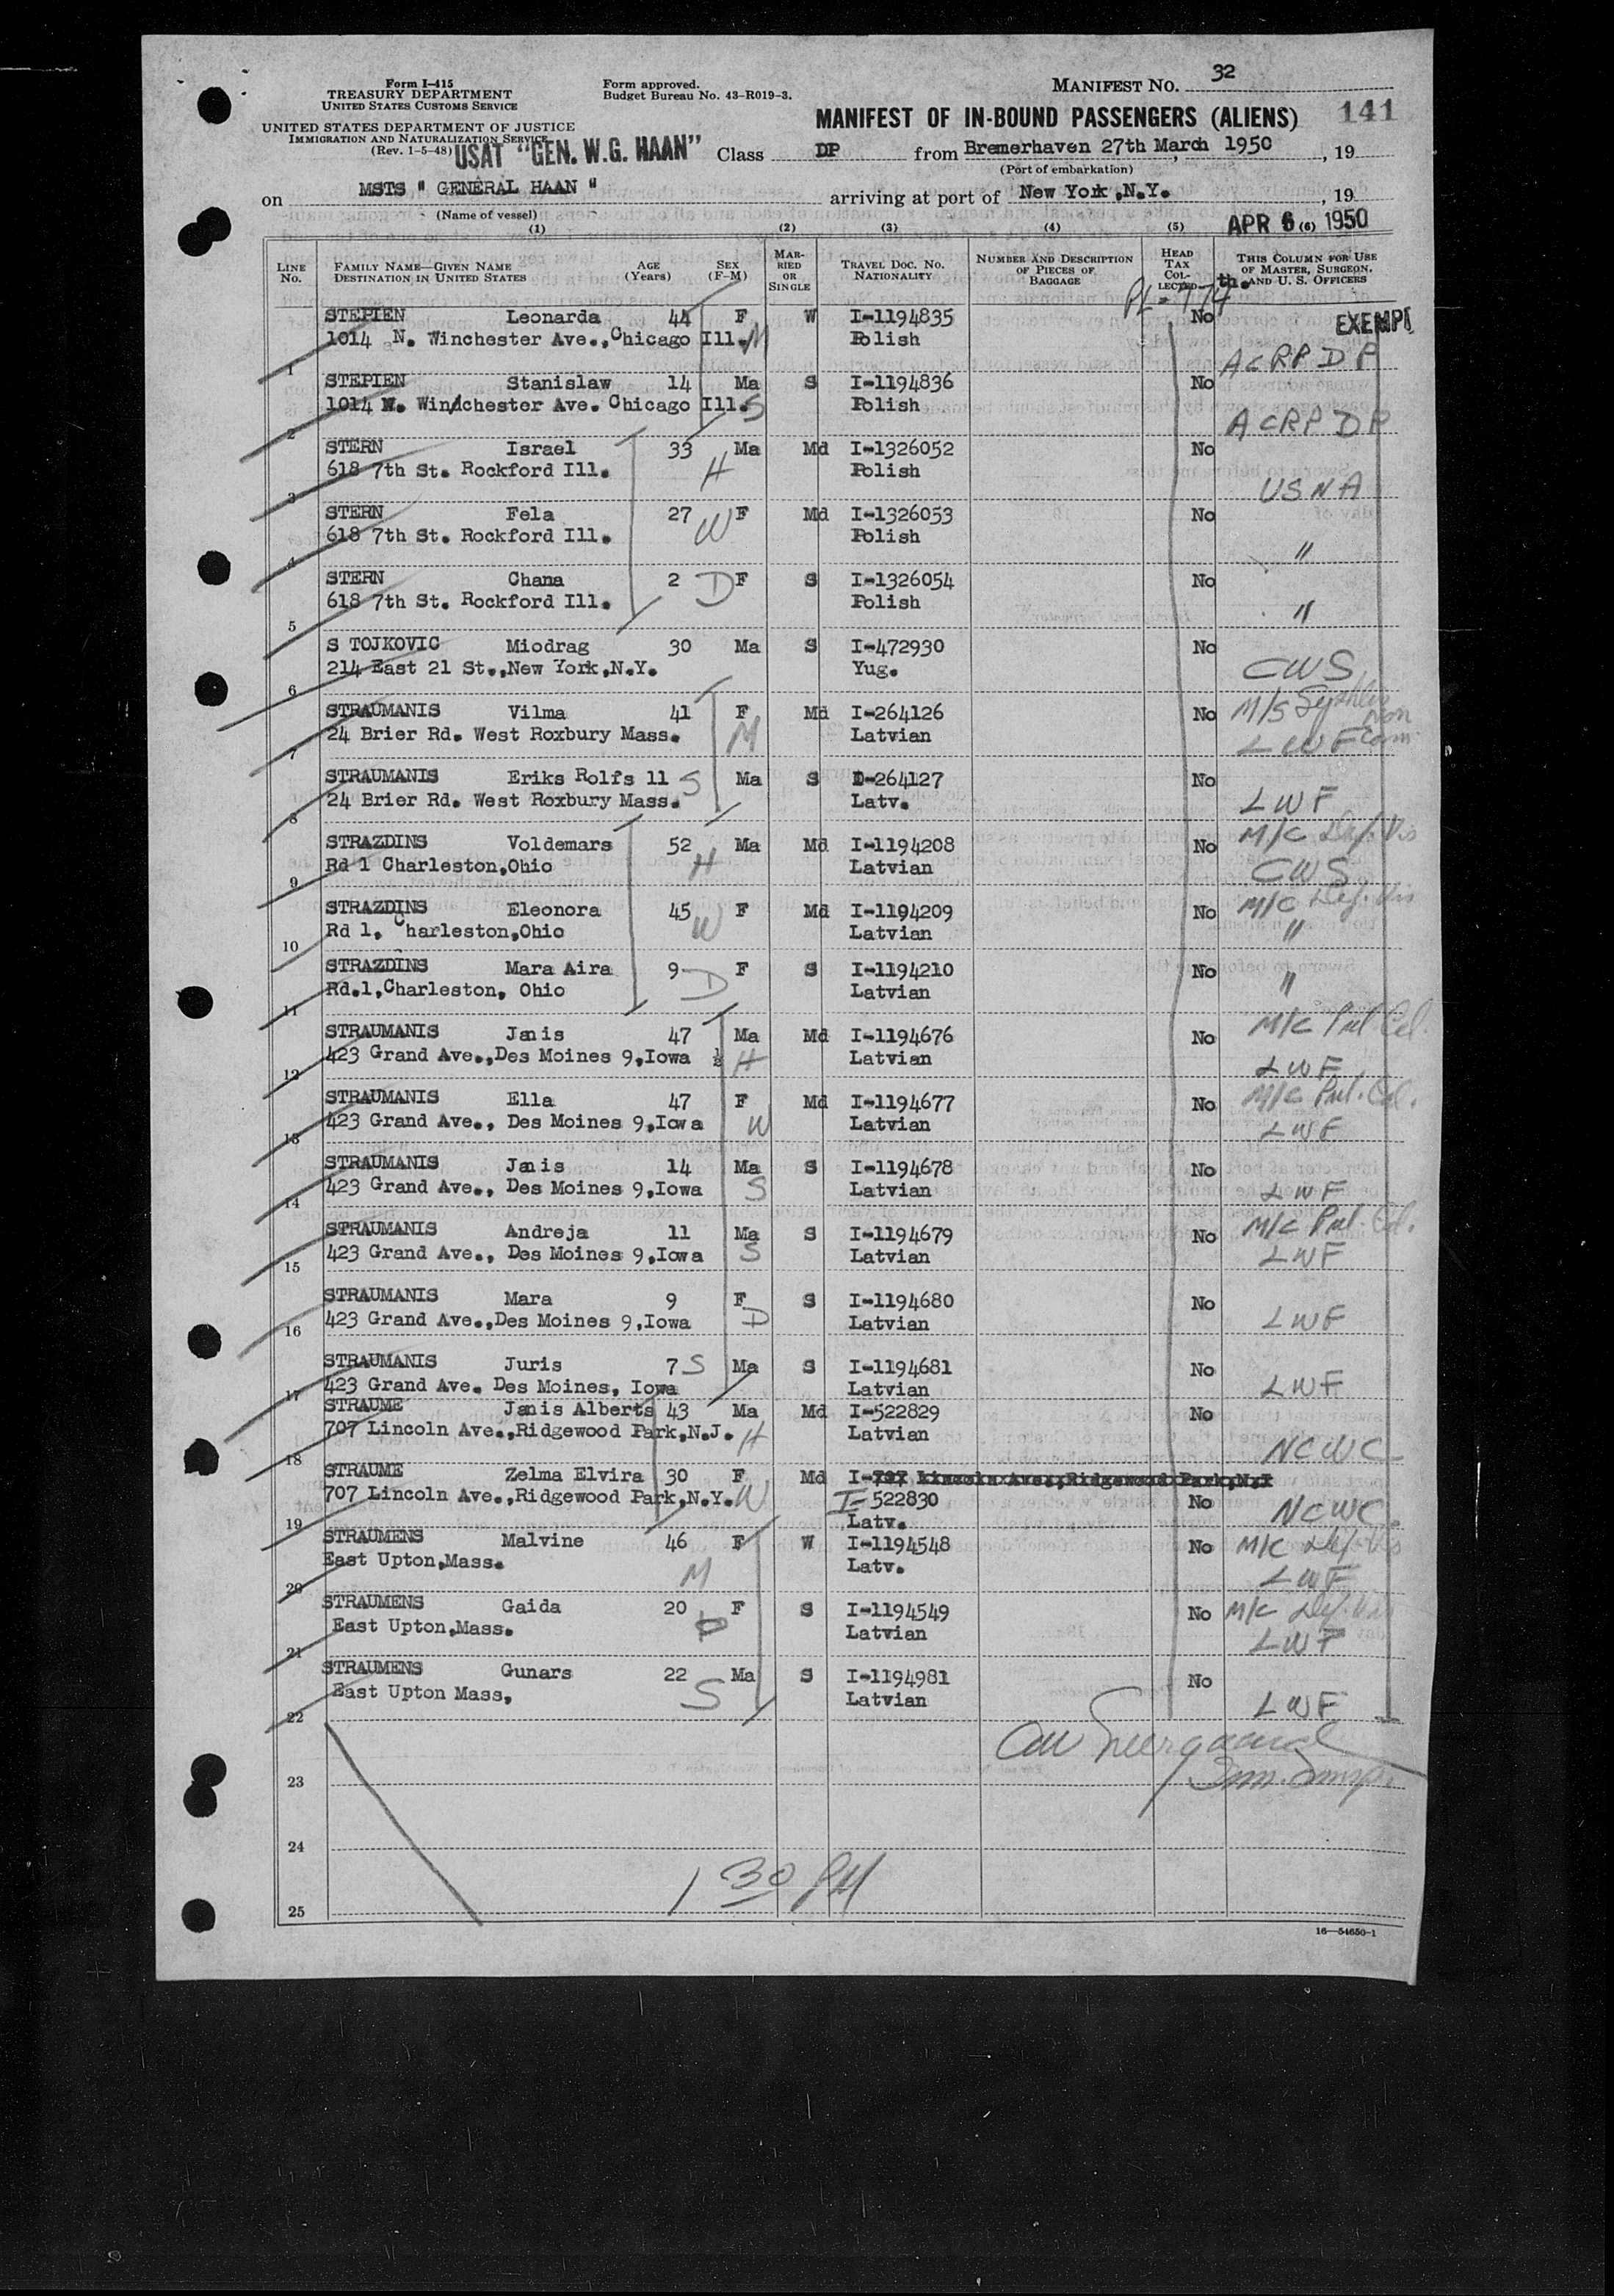 Form I-415
TREASURY DEPARTMENT
UNITED STATES CUSTOMS SERVICE
Form approved.
Budget Bureau No. 43-R019-3.
MANIFEST NO. 32
UNITED STATES DEPARTMENT OF JUSTICE
IMMIGRATION AND NATURALIZATION SERVICE
(Rev. 1-5-48)
USAT "GEN. W.G. HAAN"
MANIFEST OF IN-BOUND PASSENGERS (ALIENS) 141
Class DP from Bremerhaven 27th March, 1950, 19
(Port of embarkation)
on MSTS " GENERAL HAAN " arriving at port of New York,N.Y. , 19
(Name of vessel)
APR 6 1950
(1) (2) (3) (4) (5) (6)
LINE No. FAMILY NAME—GIVEN NAME DESTINATION IN UNITED STATES AGE (Years) SEX (F-M) MARRIED OR SINGLE TRAVEL DOC. NO. NATIONALITY NUMBER AND DESCRIPTION OF PIECES OF BAGGAGE HEAD TAX COLLECTED THIS COLUMN FOR USE OF MASTER, SURGEON, AND U. S. OFFICERS
PL-774 th.
STEPIEN Leonarda 44 F W I-1194835 No EXEMPT
1014 N. Winchester Ave.,Chicago Ill. M Polish ACRPDP
1
STEPIEN Stanislaw 14 Ma S I-1194836 No
1014 N. Winchester Ave. Chicago Ill. S Polish ACRPDP
2
STERN Israel 33 Ma Md I-1326052 No
618 7th St. Rockford Ill. H Polish USNA
3
STERN Fela 27 F Md I-1326053 No
618 7th St. Rockford Ill. W Polish "
4
STERN Chana 2 D F S I-1326054 No
618 7th St. Rockford Ill. Polish "
5
S TOJKOVIC Miodrag 30 Ma S I-472930 No
214 East 21 St.,New York,N.Y. Yug. CWS
6
STRAUMANIS Vilma 41 F Md I-264126 No M/S
24 Brier Rd. West Roxbury Mass. M Latvian LWF
7
STRAUMANIS Eriks Rolfs 11 S Ma S D-264127 No
24 Brier Rd. West Roxbury Mass. Latv. LWF
8
STRAZDINS Voldemars 52 Ma Md I-1194208 No M/C Def. Vis
Rd 1 Charleston,Ohio H Latvian CWS
9
STRAZDINS Eleonora 45 F Md I-1194209 No M/C Def. Vis
Rd 1, Charleston,Ohio W Latvian "
10
STRAZDINS Mara Aira 9 F S I-1194210 No
Rd.1,Charleston, Ohio D Latvian "
11
STRAUMANIS Janis 47 Ma Md I-1194676 No M/C
423 Grand Ave.,Des Moines 9,Iowa H Latvian LWF
12
STRAUMANIS Ella 47 F Md I-1194677 No M/C
423 Grand Ave., Des Moines 9,Iowa W Latvian LWF
13
STRAUMANIS Janis 14 Ma S I-1194678 No
423 Grand Ave., Des Moines 9,Iowa S Latvian LWF
14
STRAUMANIS Andreja 11 Ma S I-1194679 No M/C
423 Grand Ave., Des Moines 9,Iowa S Latvian LWF
15
STRAUMANIS Mara 9 F S I-1194680 No
423 Grand Ave.,Des Moines 9,Iowa D Latvian LWF
16
STRAUMANIS Juris 7 S Ma S I-1194681 No
423 Grand Ave. Des Moines, Iowa Latvian LWF
17
STRAUME Janis Alberts 43 Ma Md I-522829 No
707 Lincoln Ave.,Ridgewood Park,N.J. H Latvian NCWC
18
STRAUME Zelma Elvira 30 F Md I-707 Lincoln Ave.,Ridgewood Park,N.J
707 Lincoln Ave.,Ridgewood Park,N.Y. W I-522830 No NCWC
Latv.
19
STRAUMENS Malvine 46 F W I-1194548 No M/C Def. Vis
East Upton,Mass. M Latv. LWF
20
STRAUMENS Gaida 20 F S I-1194549 No M/C Def. Vis
East Upton,Mass. D Latvian LWF
21
STRAUMENS Gunars 22 Ma S I-1194981 No
East Upton Mass, S Latvian LWF
22
Imm. Insp.
23
24
1 30 PM
25
16—54650-1